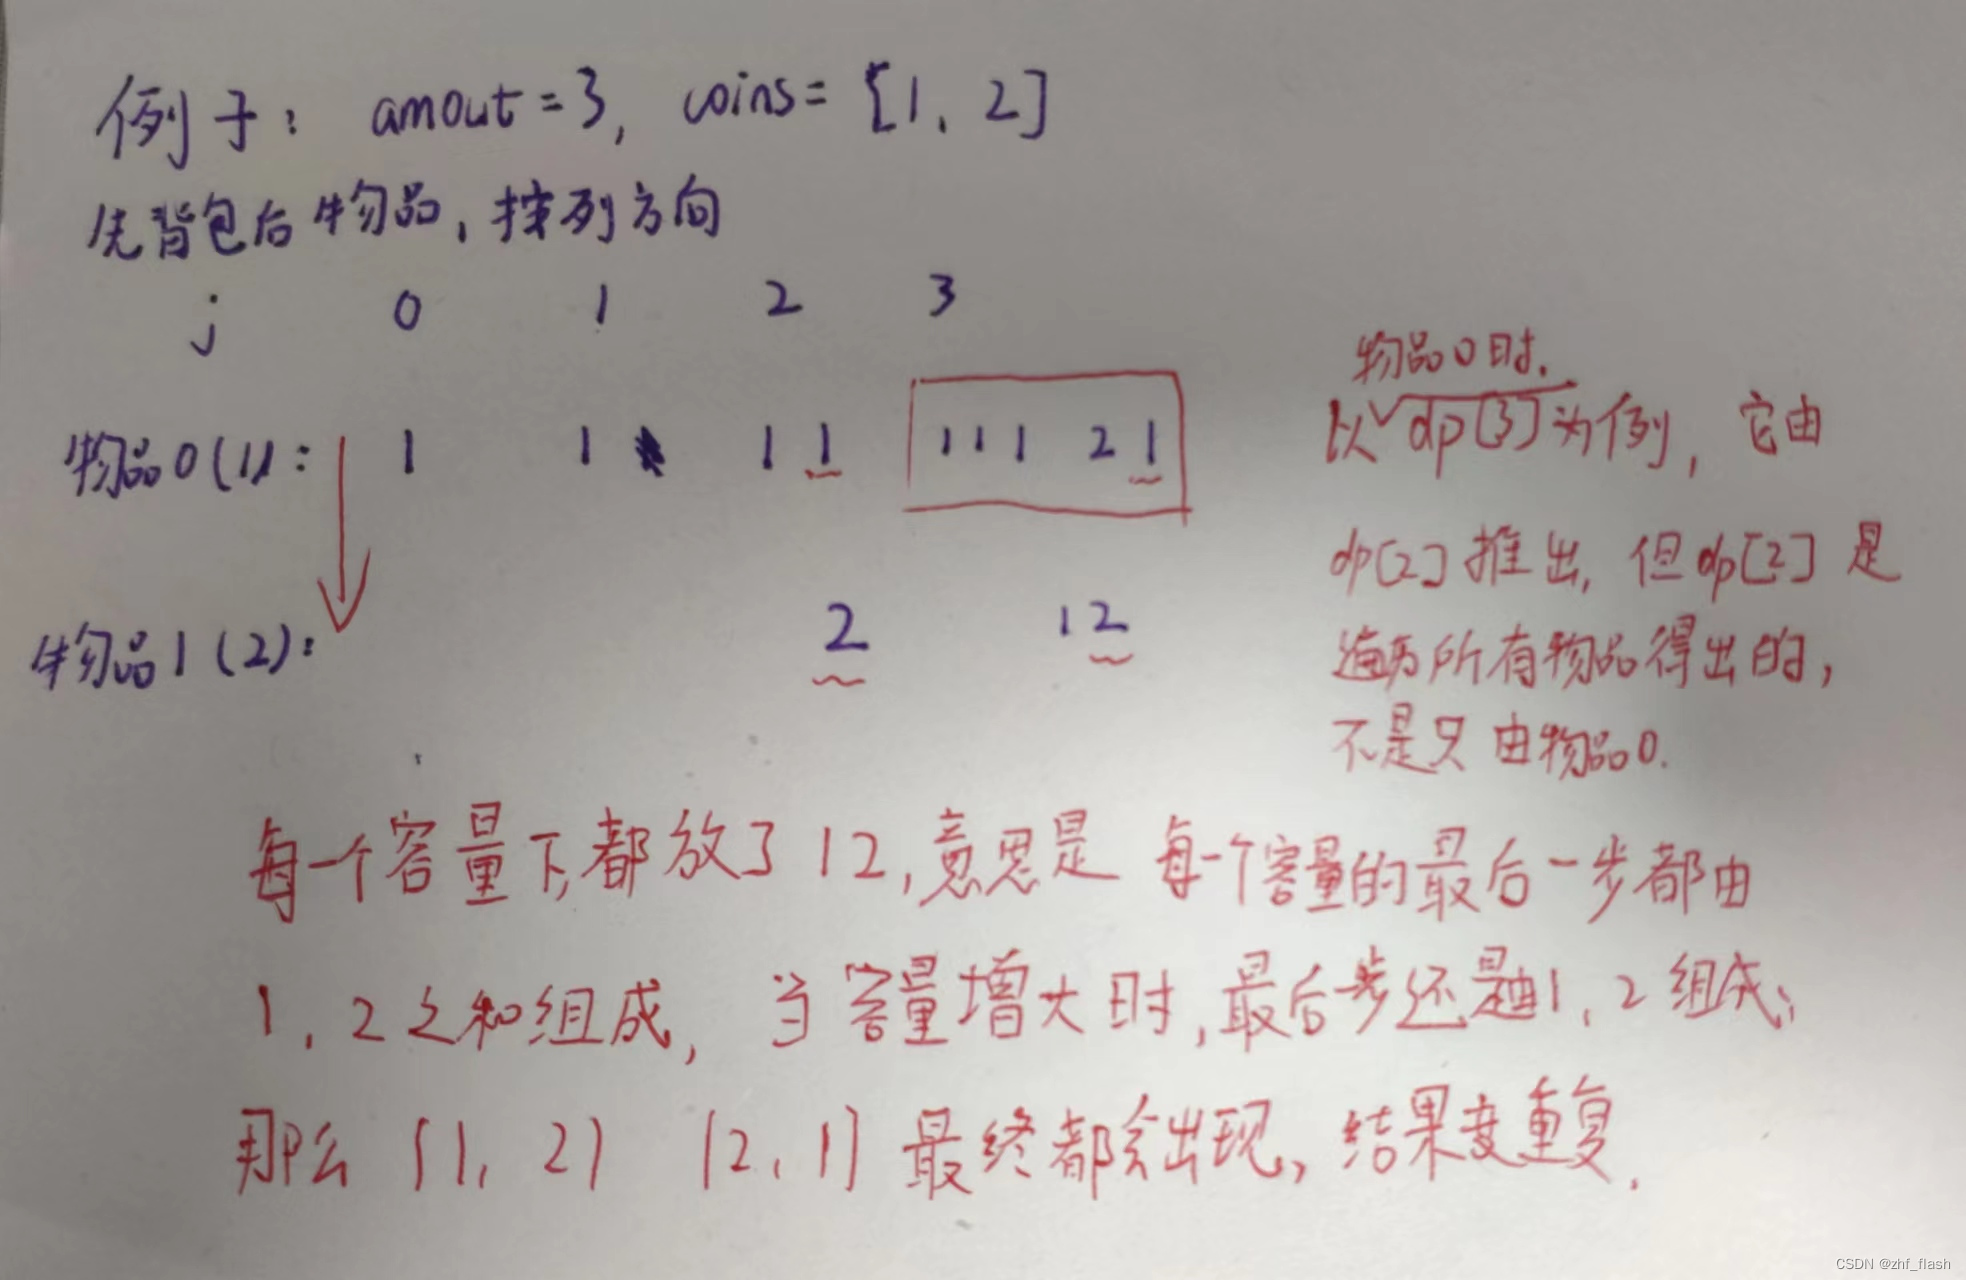 例子： amout=3, coins=[1、2]
先背包后物品，按列方向
j 0 1 2 3
物品0(1)： 1 1 1 1 1 1 1 2 1
物品1(2)： 2 1 2
物品0时，
以dp[3]为例，它由
dp[2]推出，但dp[2]是
遍历所有物品得出的，
不是只由物品0.
每一个容量下,都放了12,意思是 每一个容量的最后一步都由
1，2之和组成，当容量增大时,最后一步还是由1、2组成；
那么 {1，2} {2、1} 最终都会出现，结果变重复.
CSDN @zhf_flash